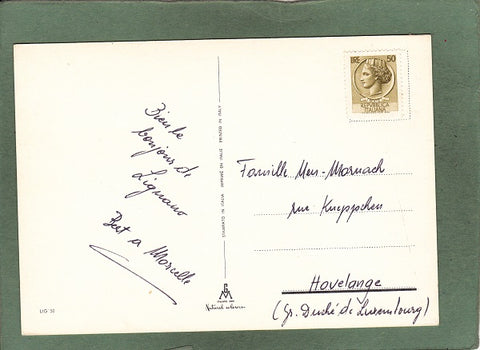 Bien le
bonjour de
Lignano
Bert a Marcelle
LIG 32
STAMPATO IN ITALIA IMPRIMÉ EN ITALIE PRINTED IN ITALY
LIRE 50
REPUBBLICA
ITALIANA
Famille Men-Mornach
rue Kneppchen
Hovelange
(Gr. Duché de Luxembourg)